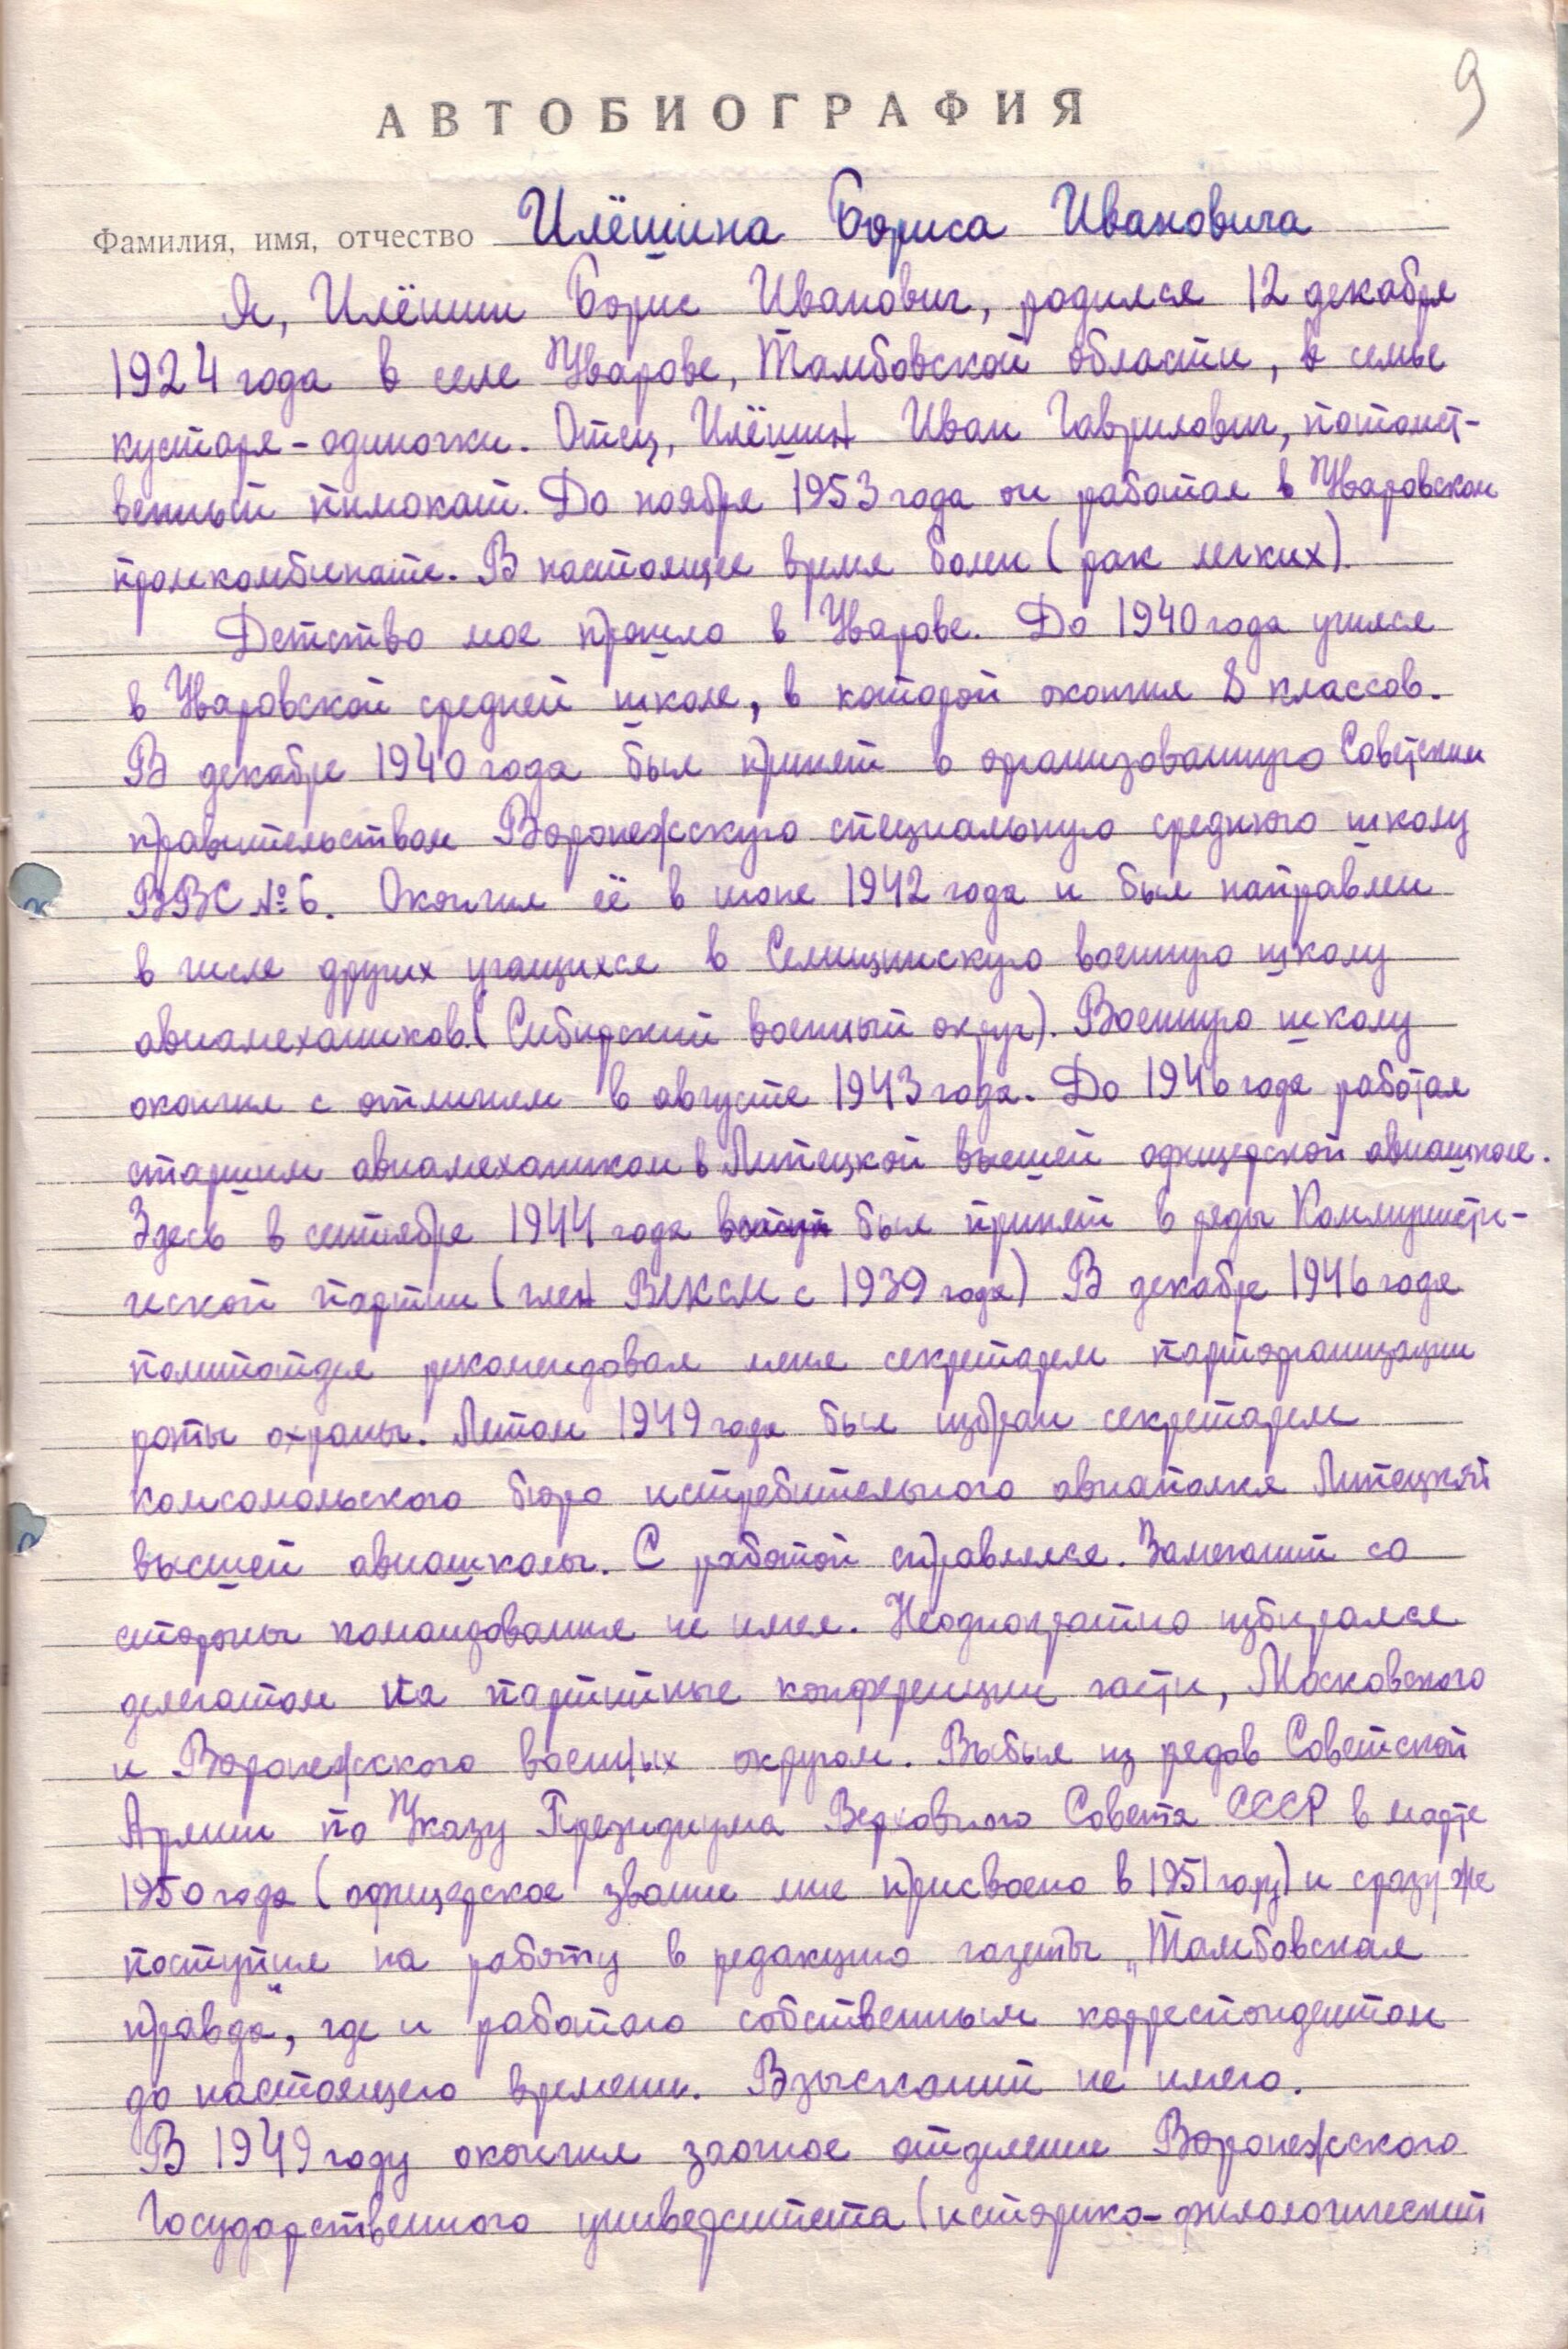 9
АВТОБИОГРАФИЯ
Фамилия, имя, отчество Илёшина Бориса Ивановича
Я, Илёшин Борис Иванович, родился 12 декабря
1924 года в селе Уварове, Тамбовской области, в семье
кустаря-одиночки. Отец, Илёшин Иван Гаврилович, потомст-
венный пимокат. До ноября 1953 года он работал в Уваровском
промкомбинате. В настоящее время болен (рак легких).
Детство мое прошло в Уварове. До 1940 года учился
в Уваровской средней школе, в которой окончил 8 классов.
В декабре 1940 года был принят в организованную Советским
правительством Воронежскую специальную среднюю школу
ВВС № 6. Окончил её в июне 1942 года и был направлен
в числе других учащихся в Селищинскую военную школу
авиамехаников (Сибирский военный округ). Военную школу
окончил с отличием в августе 1943 года. До 1946 года работал
старшим авиамехаником в Липецкой высшей офицерской авиашколе.
Здесь в сентябре 1944 года был принят в ряды Коммунисти-
ческой партии (член ВЛКСМ с 1939 года) В декабре 1946 года
политотдел рекомендовал меня секретарем парторганизации
роты охраны. Летом 1949 года был избран секретарем
комсомольского бюро истребительного авиаполка Липецкой
высшей авиашколы. С работой справлялся. Замечаний со
стороны командования не имел. Неоднократно избирался
делегатом на партийные конференции части, Московского
и Воронежского военных округом. Выбыл из рядов Советской
Армии по Указу Президиума Верховного Совета СССР в марте
1950 года (офицерское звание мне присвоено в 1951 году) и сразу же
поступил на работу в редакцию газеты „Тамбовская
правда", где и работаю собственным корреспондентом
до настоящего времени. Взысканий не имею.
В 1949 году окончил заочное отделение Воронежского
Государственного университета (историко-филологический